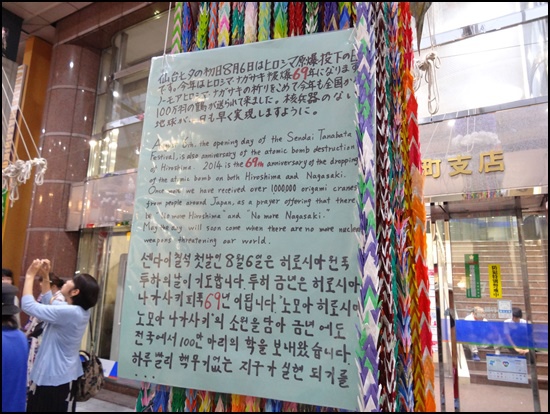 仙台七夕の初日8月6日はヒロシマ原爆投下の日
です。今年はヒロシマ・ナガサキ被爆69年になります
ノーモアヒロシマ・ナガサキの祈りをこめて今年も全国から
100万羽の鶴が送られて来ました。核兵器のない
地球が一日も早く実現しますように。
August 6th, the opening day of the Sendai Tanabata
Festival, is also anniversary of the atomic bomb destruction
of Hiroshima. 2014 is the 69th anniversary of the dropping
of the atomic bomb on both Hiroshima and Nagasaki.
Once more we have received over 1000000 origami cranes
from people around Japan, as a prayer offering that there
be "No more Hiroshima" and "No more Nagasaki."
May the day will soon come when there are no more nuclear
weapons threatening our world.
센다이 칠석 첫날인 8월6일은 히로시마 원폭
투하의 날이 기도합니다. 특히 금년은 히로시마
나가사키 피폭 69년이 됩니다 '노모아 히로시마
노모아 나가사키'의 소원을 담아 금년에도
전국에서 100만 마리의 학을 보내왔습니다.
하루빨리 핵무기없는 지구가 실현 되기를
....
町支店